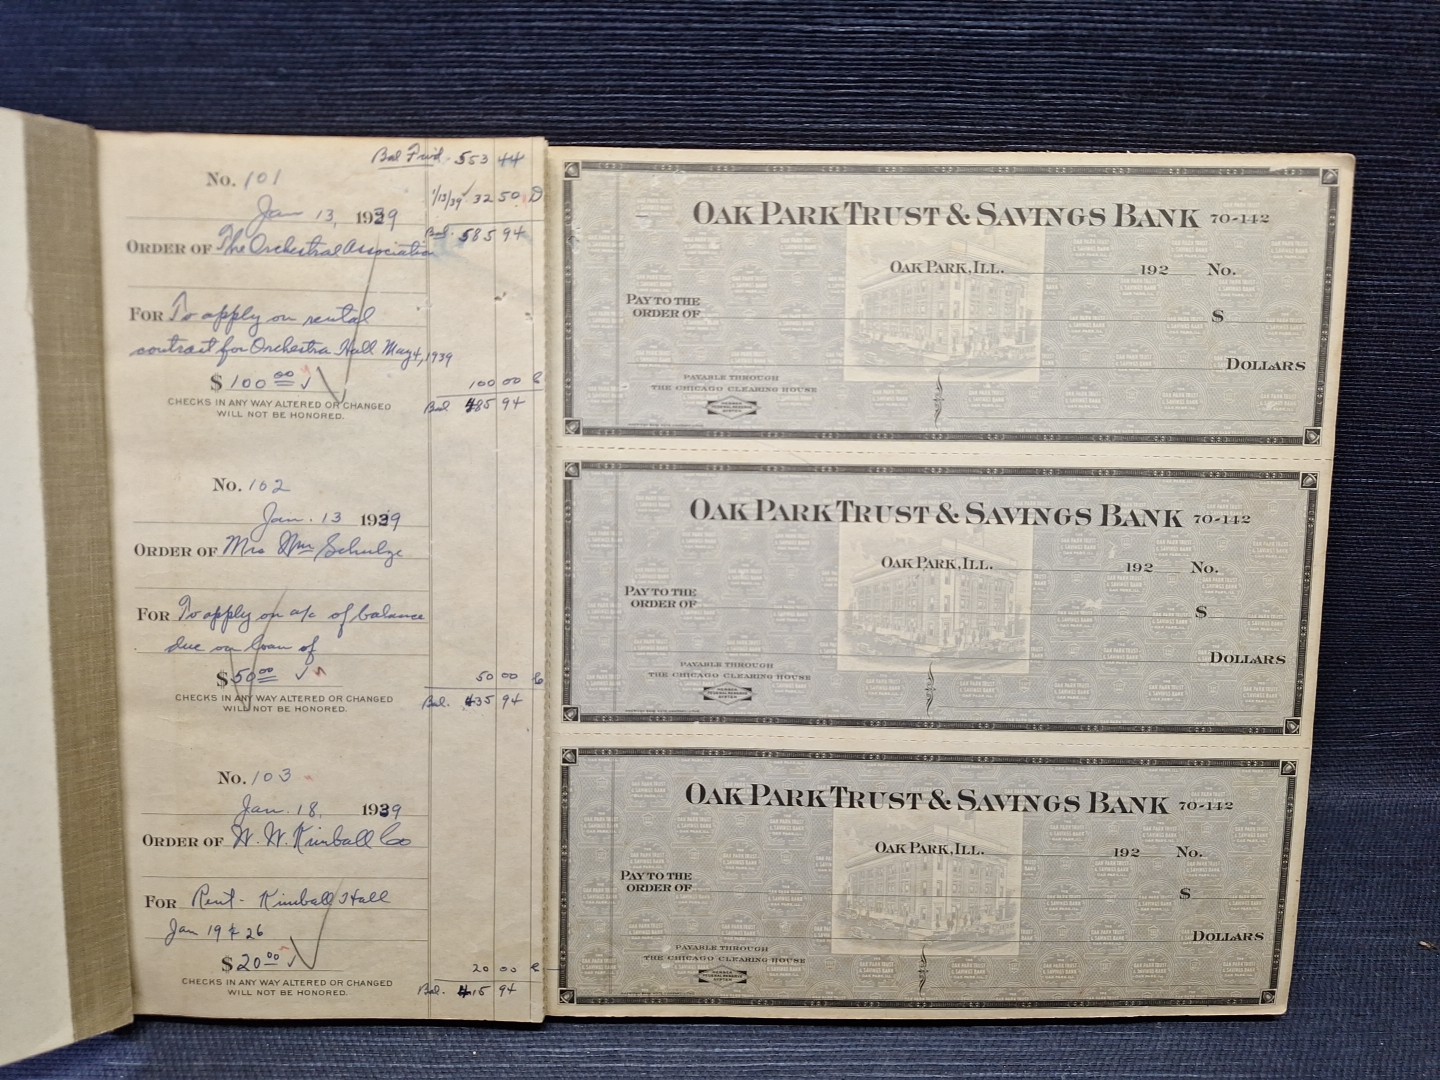 Bal Fwd. 553 44
No. 101
1/13/39 ✓ 32 50 D
Jan 13, 1939
Bal. 585 94
ORDER OF The Orchestral Association
FOR To apply on rental
contract for Orchestra Hall May 4, 1939
$ 100 00 ✓
100 00
CHECKS IN ANY WAY ALTERED OR CHANGED
WILL NOT BE HONORED.
Bal 485 94
No. 102
Jan. 13 1939
ORDER OF Mrs Wm Schulze
FOR To apply on a/c of balance
due on loan of
$ 50 00 ✓
50 00
CHECKS IN ANY WAY ALTERED OR CHANGED
WILL NOT BE HONORED.
Bal. 435 94
No. 103
Jan. 18, 1939
ORDER OF W. W. Kimball Co
FOR Rent - Kimball Hall
Jan 19 & 26
$ 20 00 ✓
20 00
CHECKS IN ANY WAY ALTERED OR CHANGED
WILL NOT BE HONORED.
Bal. 415 94
OAK PARK TRUST & SAVINGS BANK 70-142
OAK PARK, ILL. 192 No.
PAY TO THE
ORDER OF $
DOLLARS
PAYABLE THROUGH
THE CHICAGO CLEARING HOUSE
MEMBER
FEDERAL RESERVE
SYSTEM
OAK PARK TRUST & SAVINGS BANK 70-142
OAK PARK, ILL. 192 No.
PAY TO THE
ORDER OF $
DOLLARS
PAYABLE THROUGH
THE CHICAGO CLEARING HOUSE
MEMBER
FEDERAL RESERVE
SYSTEM
OAK PARK TRUST & SAVINGS BANK 70-142
OAK PARK, ILL. 192 No.
PAY TO THE
ORDER OF $
DOLLARS
PAYABLE THROUGH
THE CHICAGO CLEARING HOUSE
MEMBER
FEDERAL RESERVE
SYSTEM